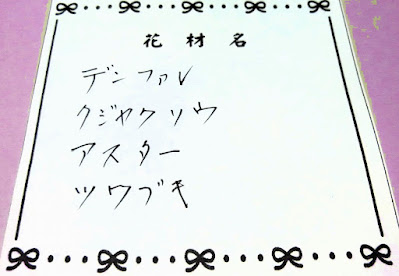 花材名
デンファレ
クジャクソウ
アスター
ツワブキ